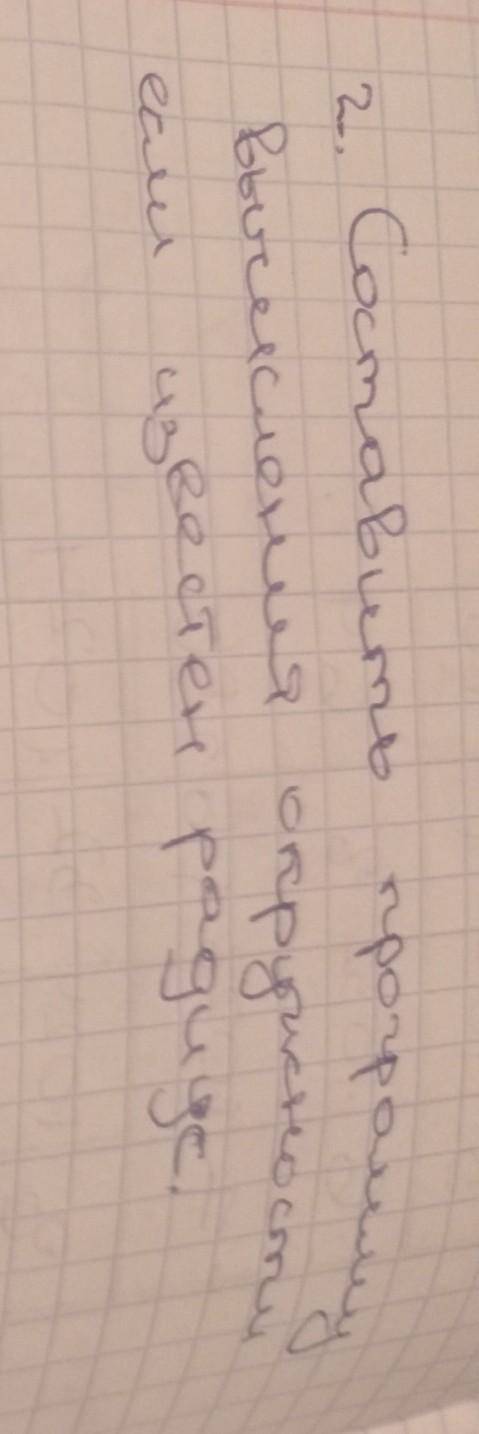 2. Составить программу
вычисления окружности
если известен радиус.